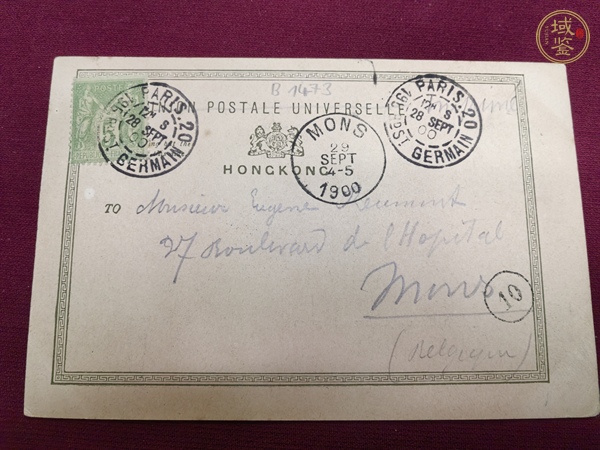 域鉴
B 1473
UNION POSTALE UNIVERSELLE
PARIS 20
28 SEPT
00
ST GERMAIN
MONS
29
SEPT
4-5
1900
PARIS 20
28 SEPT
00
ST GERMAIN
HONGKONG
TO Monsieur Eugene
27 Boulevard de l'Hopital
Mons
10
(Belgique)